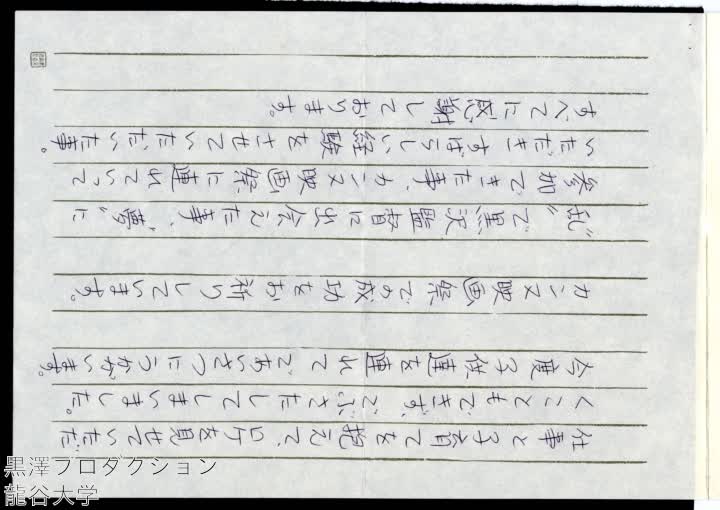 仕事と子育てを抱えて、ロケを見せていただ
くこともできず、ごぶさたしてしまいました。
今度子供達を連れてごあいさつにうかがいます。
カンヌ映画祭での成功をお祈りしています。
“乱”で黒沢監督に出会えた事、“夢”に
参加できた事、カンヌ映画祭に連れていって
いただきすばらしい経験をさせていただいた事。
すべてに感謝しております。
黒澤プロダクション
龍谷大学